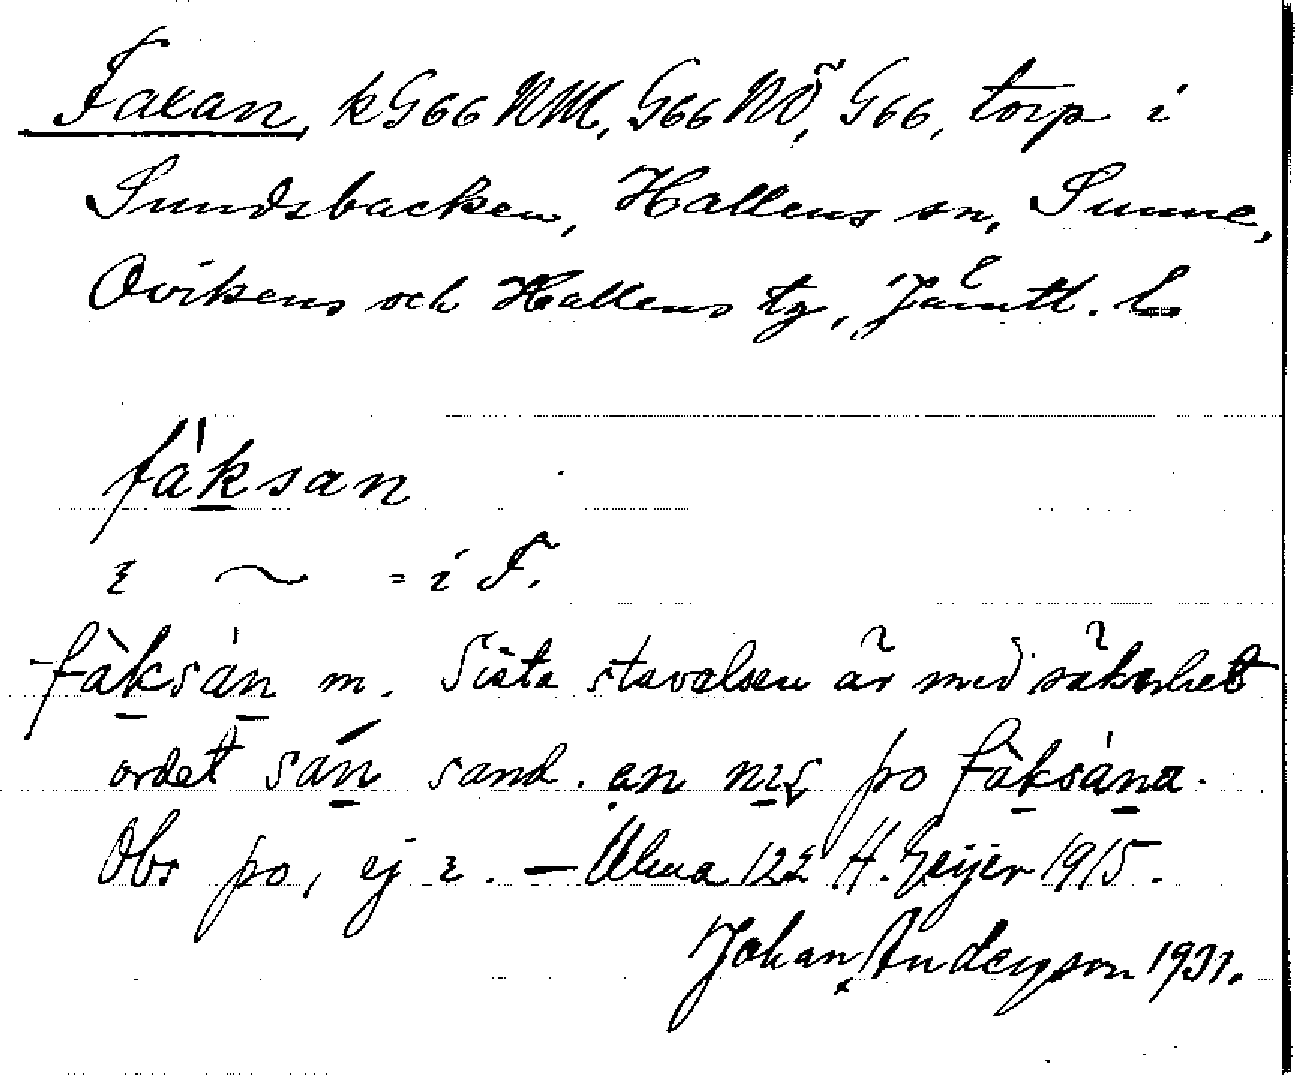 Faxan, k G66 NM, G66 NÖ, G66, torp i
Sundsbacken, Hallens sn, Sunne,
Ovikens och Hallens tg, Jämtl. L
fáksan
ɩ ~ = i F.
fàksán m. Sista stavelsen är med säkerhet
ordet sán sand. an po fàksána.
Obs po, ej ɩ. — Alma 122 H. Geijer 1915.
Johan Anderson 1931.